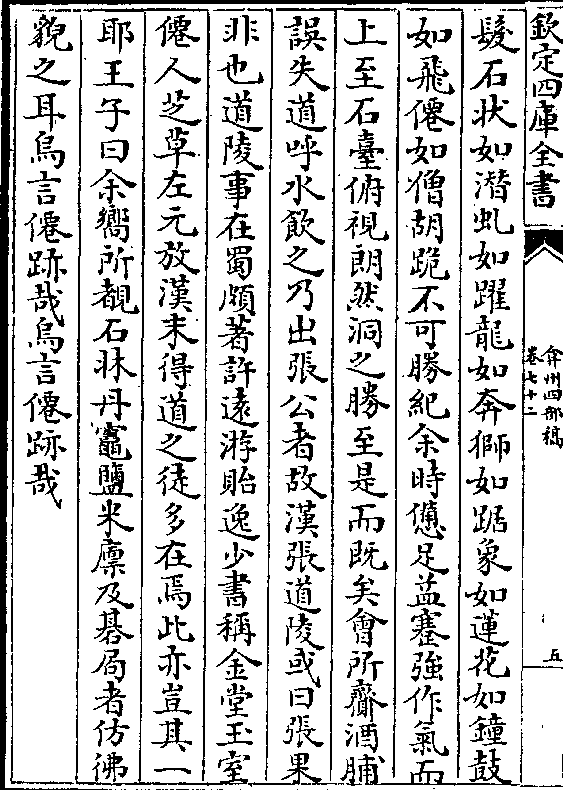 欽定四庫全書
弇州四部稿
卷七十二
五
髮石狀如潛虬如躍龍如奔獅如踞象如蓮花如鐘鼓
如飛僊如僧胡跪不可勝紀余時憊足益蹇強作氣而
上至石臺俯視朗然洞之勝至是而既矣會所齎酒脯
誤失道呼水飲之乃出張公者故漢張道陵或曰張果
非也道陵事在蜀頗著許遠游貽逸少書稱金堂玉室
僊人芝草左元放漢末得道之徒多在焉此亦豈其一
耶王子曰余嚮所覩石牀丹竈鹽米廪及碁局者仿彿
貌之耳烏言僊跡哉烏言僊跡哉